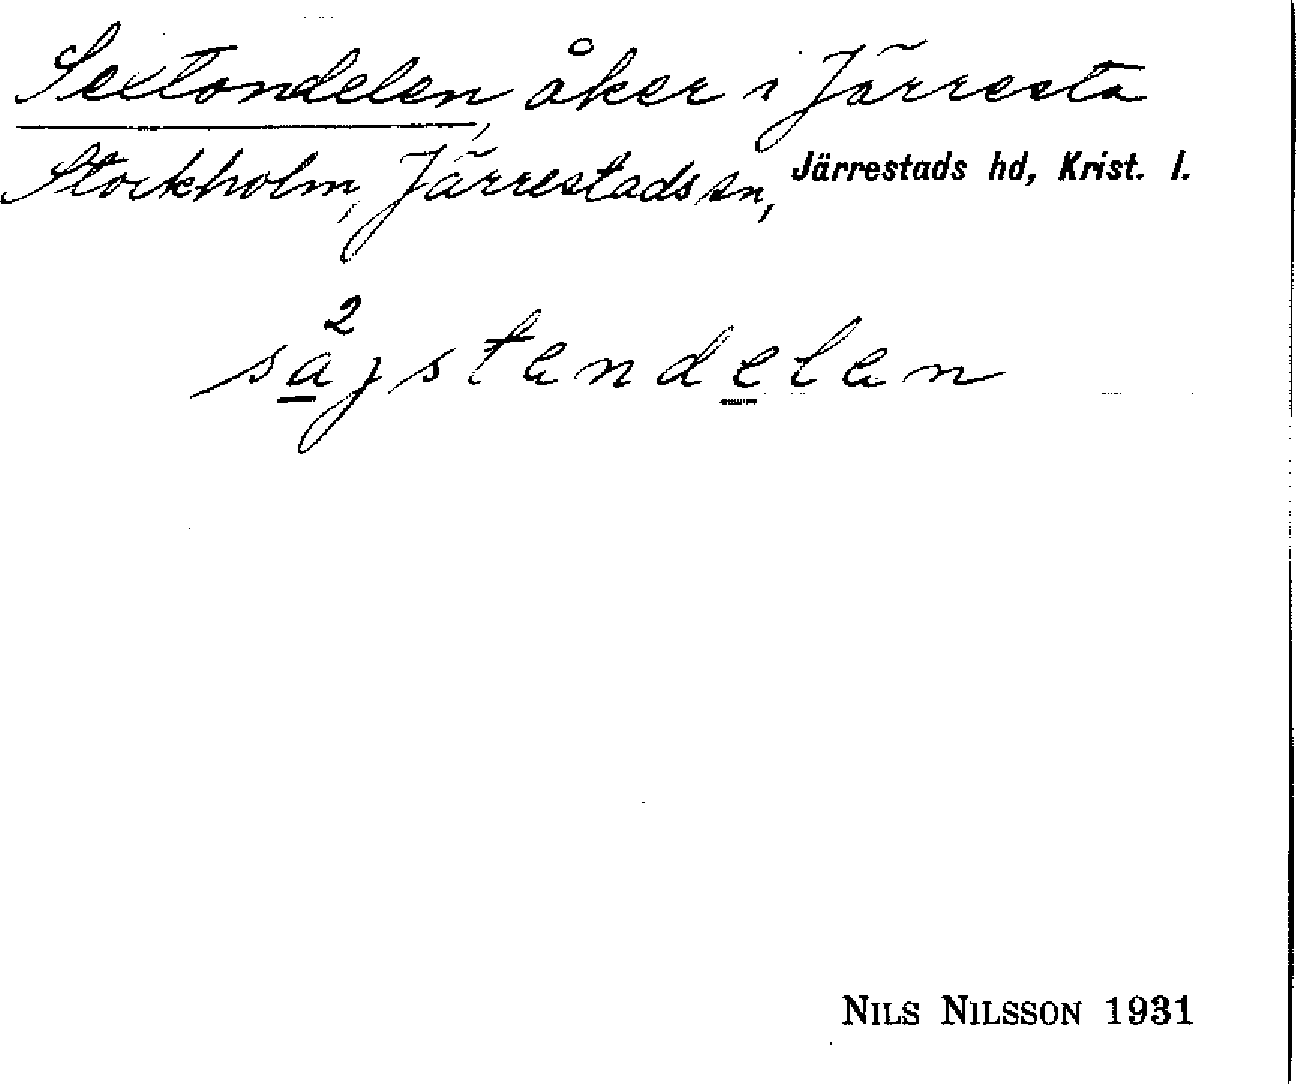 Sextondelen, åker i Järresta
Stockholm, Järrestads sn, Järrestads hd, Krist. l.
sa²jstendelen
NILS NILSSON 1931